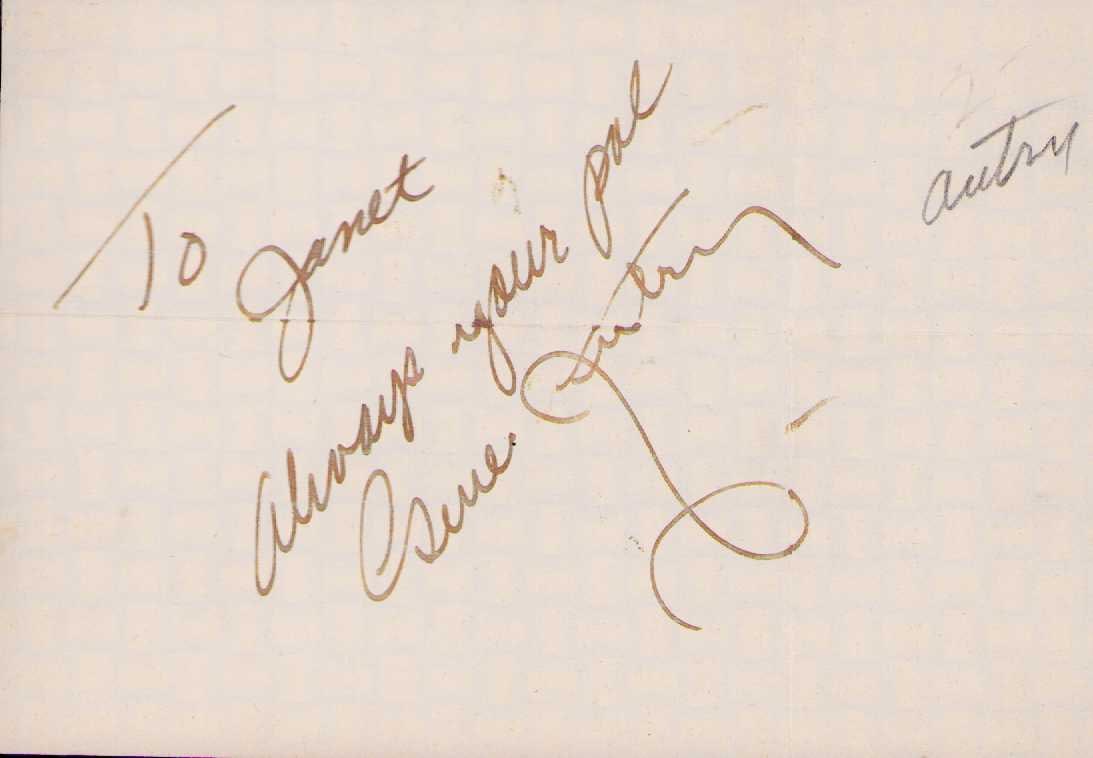 To Janet
Always your pal
Gene Autry
autry